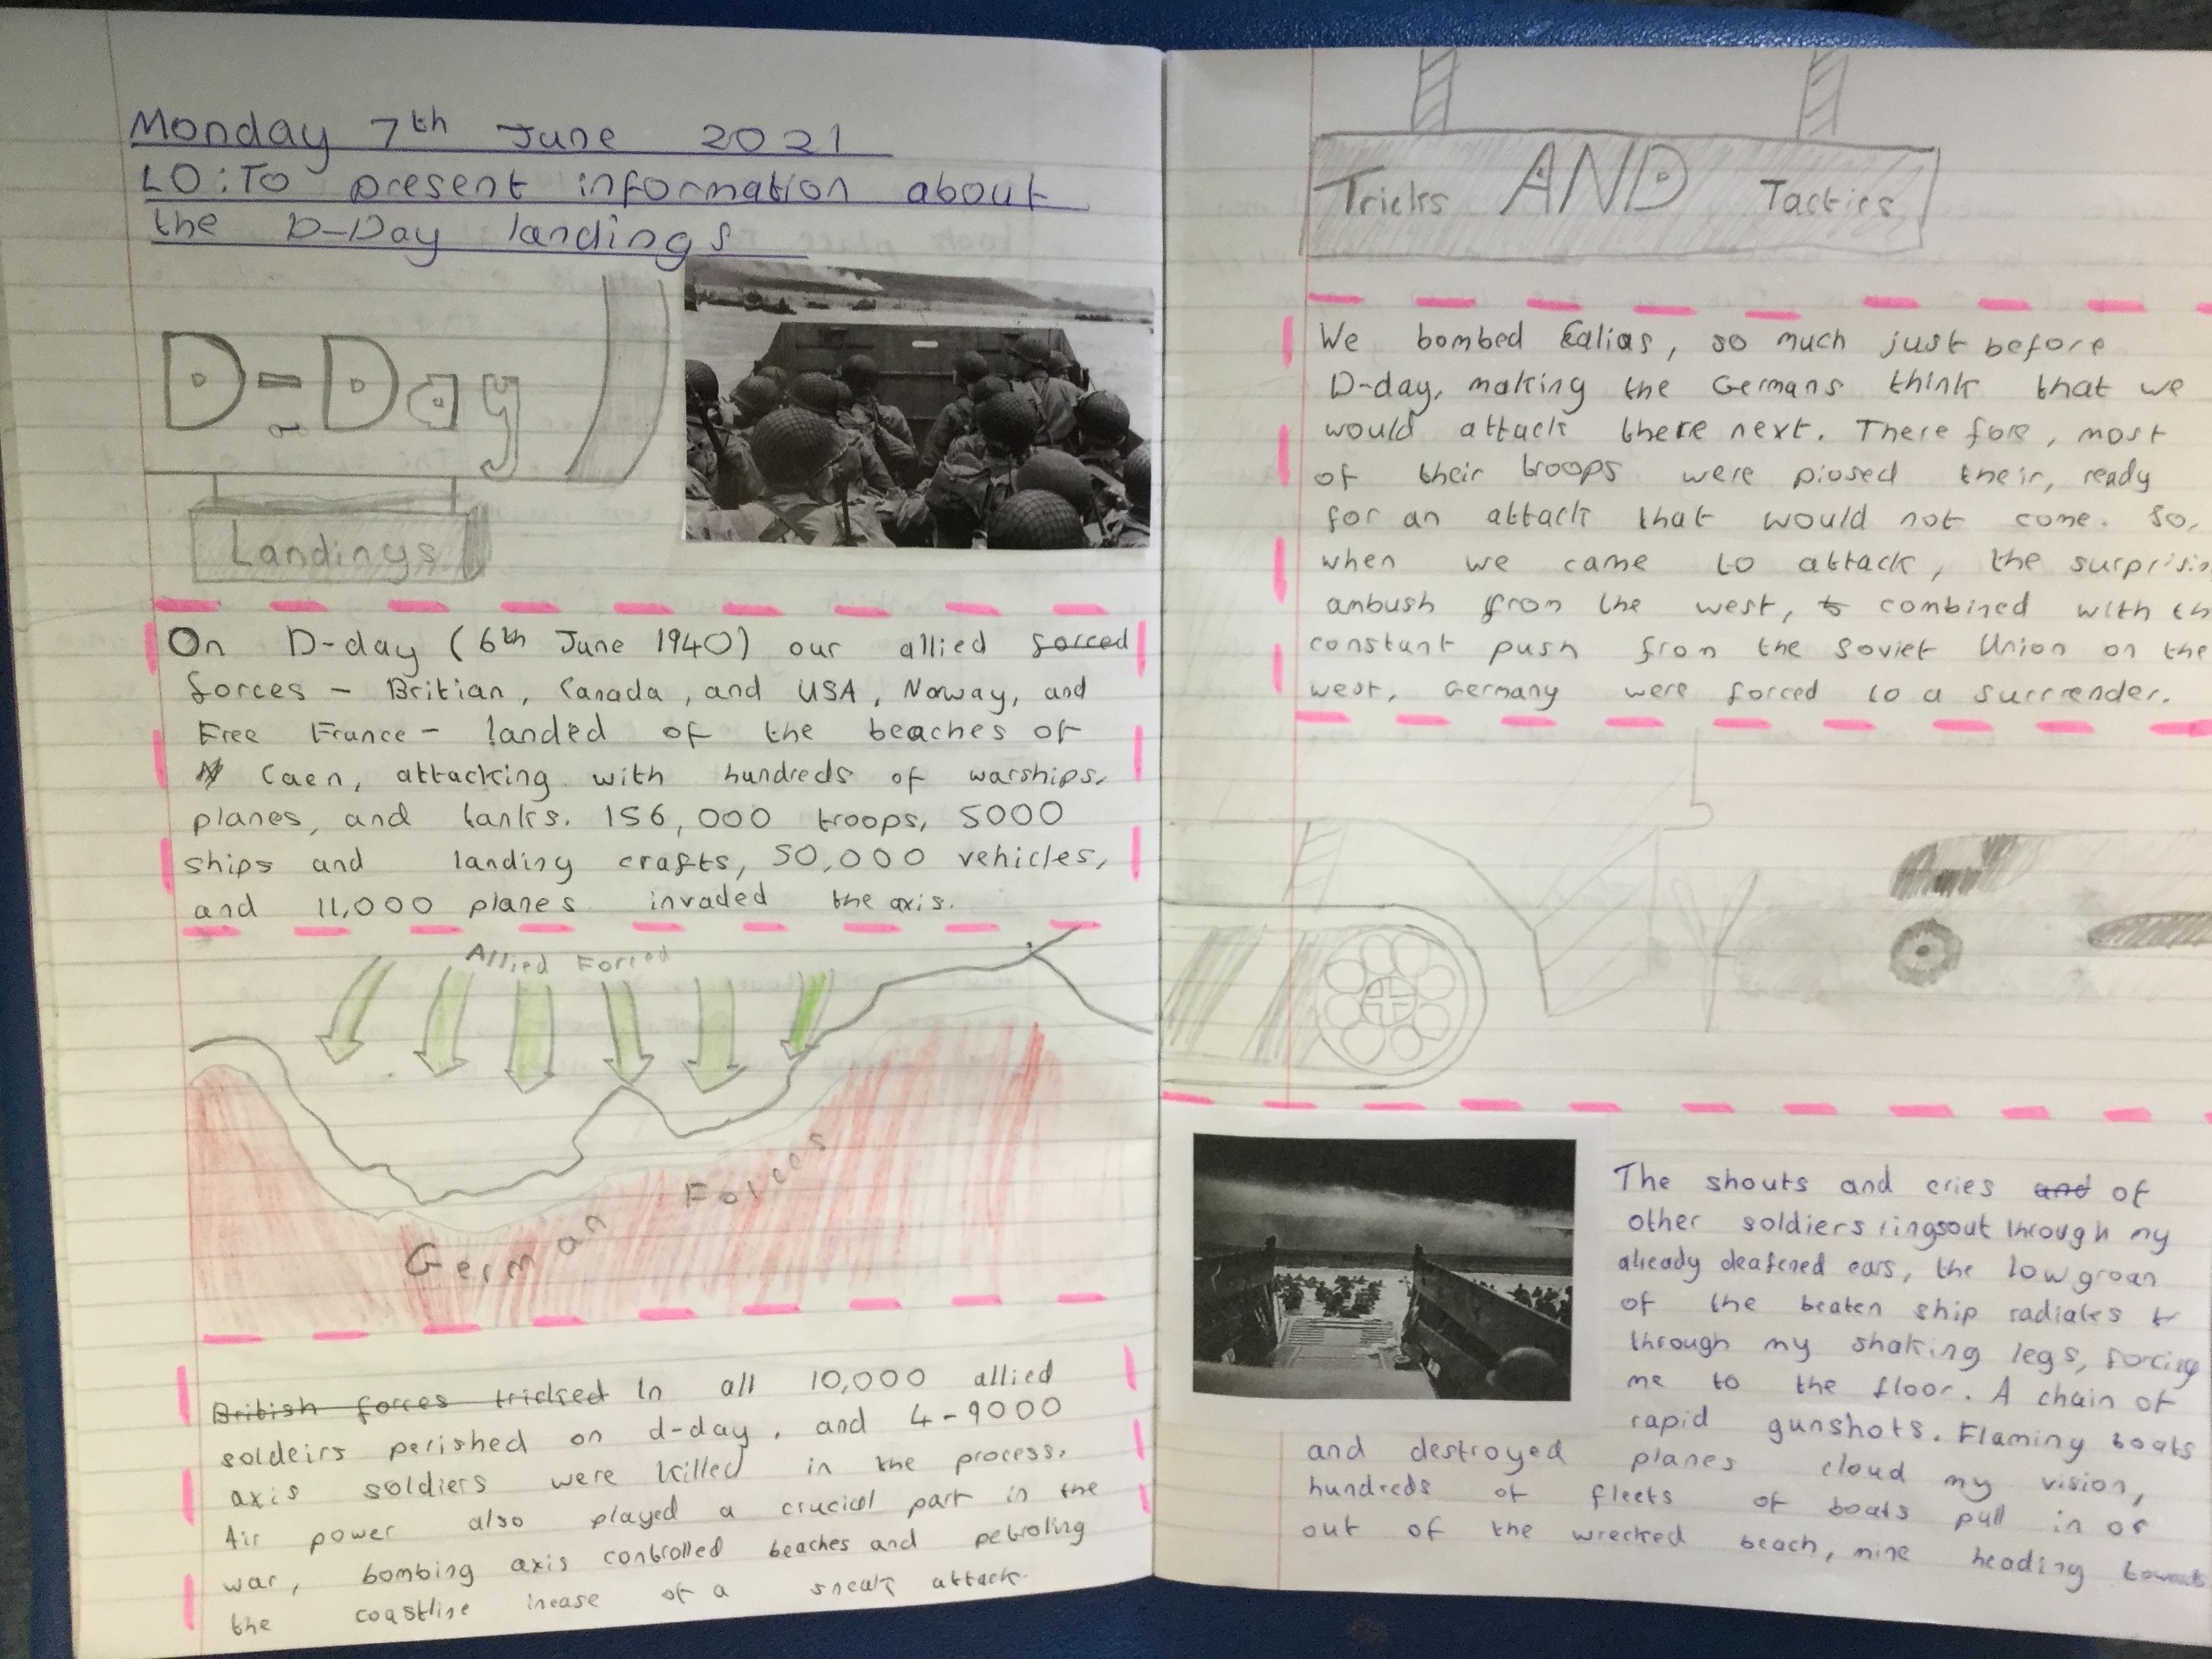 Monday 7th June 2021
LO: To present information about
the D-Day landings
D-Day
Landings
On D-day (6th June 1940) our allied forced
forces - Britian, Canada, and USA, Norway, and
Free France - landed of the beaches of
Caen, attacking with hundreds of warships,
planes, and tanks. 156,000 troops, 5000
ships and landing crafts, 50,000 vehicles,
and 11,000 planes invaded the axis.
Allied Forced
German Forces
British forces tricked In all 10,000 allied
soldeirs perished on d-day, and 4-9000
axis soldiers were killed in the process.
Air power also played a crucial part in the
war, bombing axis controlled beaches and petroling
the coastline incase of a sneak attack.
Tricks AND Tactics
We bombed Calias, so much just before
D-day, making the Germans think that we
would attack there next. Therefore, most
of their troops were piosed their, ready
for an attack that would not come. So,
when we came to attack, the surprisin
ambush from the west, combined with th
constant push from the Soviet Union on the
west, Germany were forced to a surrender.
The shouts and cries and of
other soldiers rings out through my
already deafened ears, the low groan
of the beaten ship radiates
through my shaking legs, forcing
me to the floor. A chain of
rapid gunshots. Flaming boats
and destroyed planes cloud my vision,
hundreds of fleets of boats pull in or
out of the wrecked beach, mine heading towards